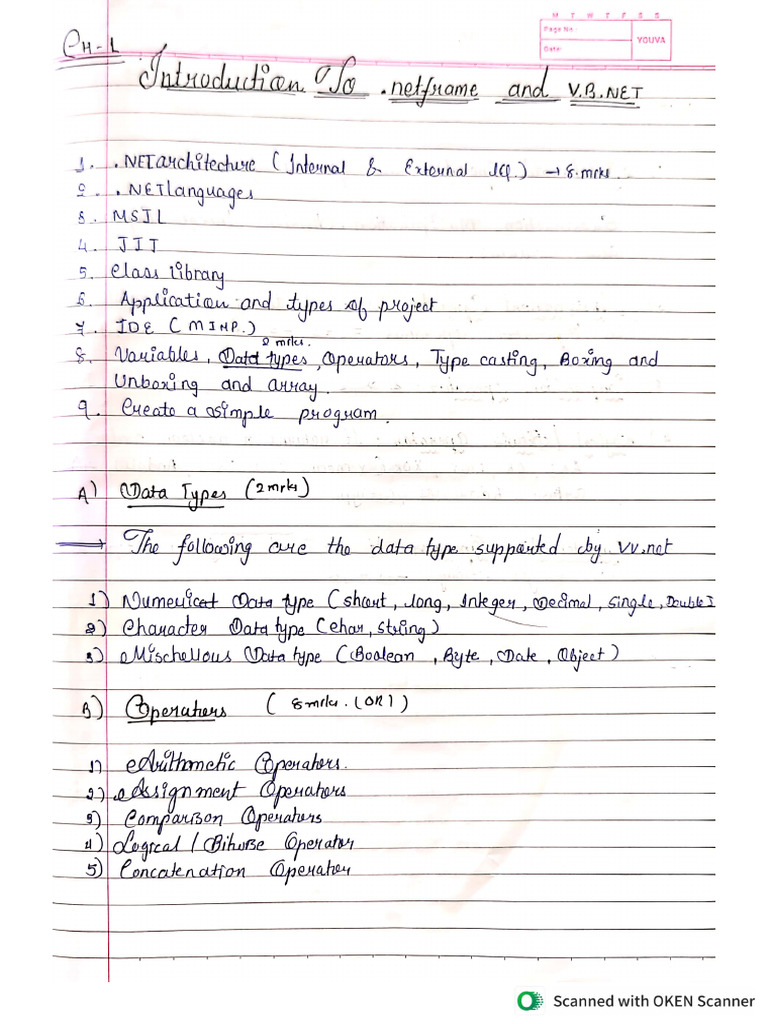 M T W T F S S
Page No.:
Date:
YOUVA
CH-1
Introduction To .netframe and V.B.NET
1. .NET architecture (Internal & External) → 8 mrks
2. .NET languages
3. MSIL
4. JIT
5. Class library
6. Application and types of project
7. IDE (MIMP.)
2 mrks.
8. Variables, Data types, Operators, Type casting, Boxing and
Unboxing and array.
9. Create a simple program.
A) Data Types (2 mrks)
→ The following are the data type supported by VV.net
1) Numerical Data type (short, long, Integer, Decimal, Single, Double)
2) Character Data type (char, string)
3) Mischellous Data type (Boolean, Byte, Date, Object)
B) Operators (8 mrks. (OR))
1) Arithmetic Operators.
2) Assignment Operators
3) Comparison Operators
4) Logical / Bitwise Operator
5) Concatenation Operator
Scanned with OKEN Scanner